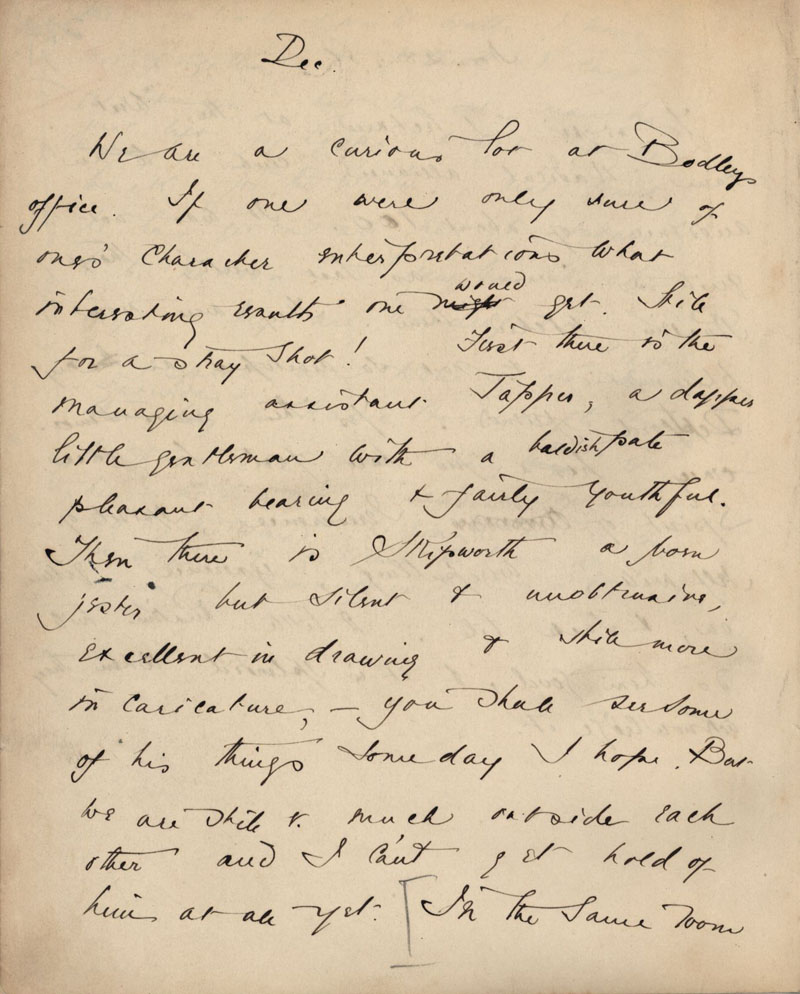 Dec.
We are a curious lot at Bodleys
office. If one were only sure of
ones' character interpretations what
interesting results one might would get. Still
for a stray shot! First there is the
managing assistant Tapper, a dapper
little gentleman with a baldish pate
pleasant bearing & fairly youthful.
Then there is Skipworth a born
jester but silent & unobtrusive,
excellent in drawing & still more
in caricature, – you shall see some
of his things some day I hope. But
we are still v. much outside each
other and I can't get hold of
him at all yet. [In the same room